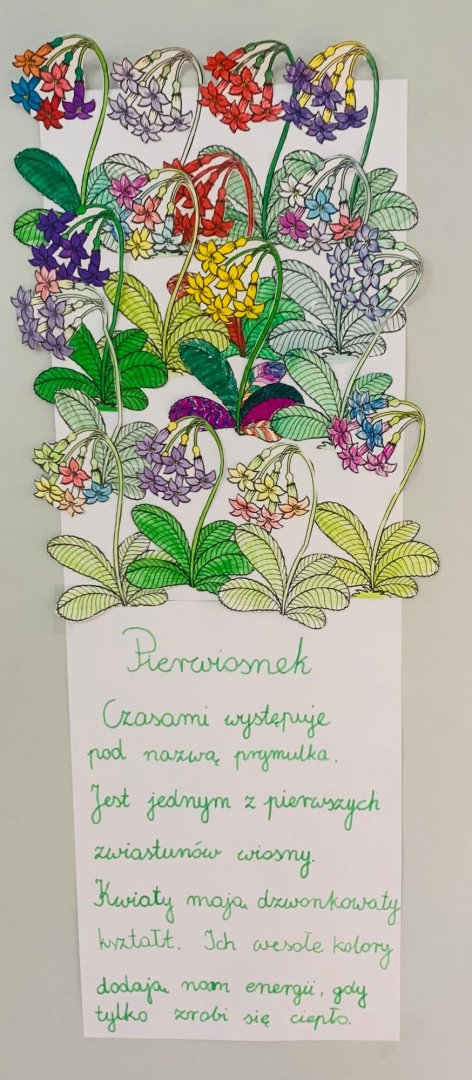 Pierwiosnek
Czasami występuje
pod nazwą prymulka.
Jest jednym z pierwszych
zwiastunów wiosny.
Kwiaty mają dzwonkowaty
kształt. Ich wesołe kolory
dodają nam energii, gdy
tylko zrobi się ciepło.